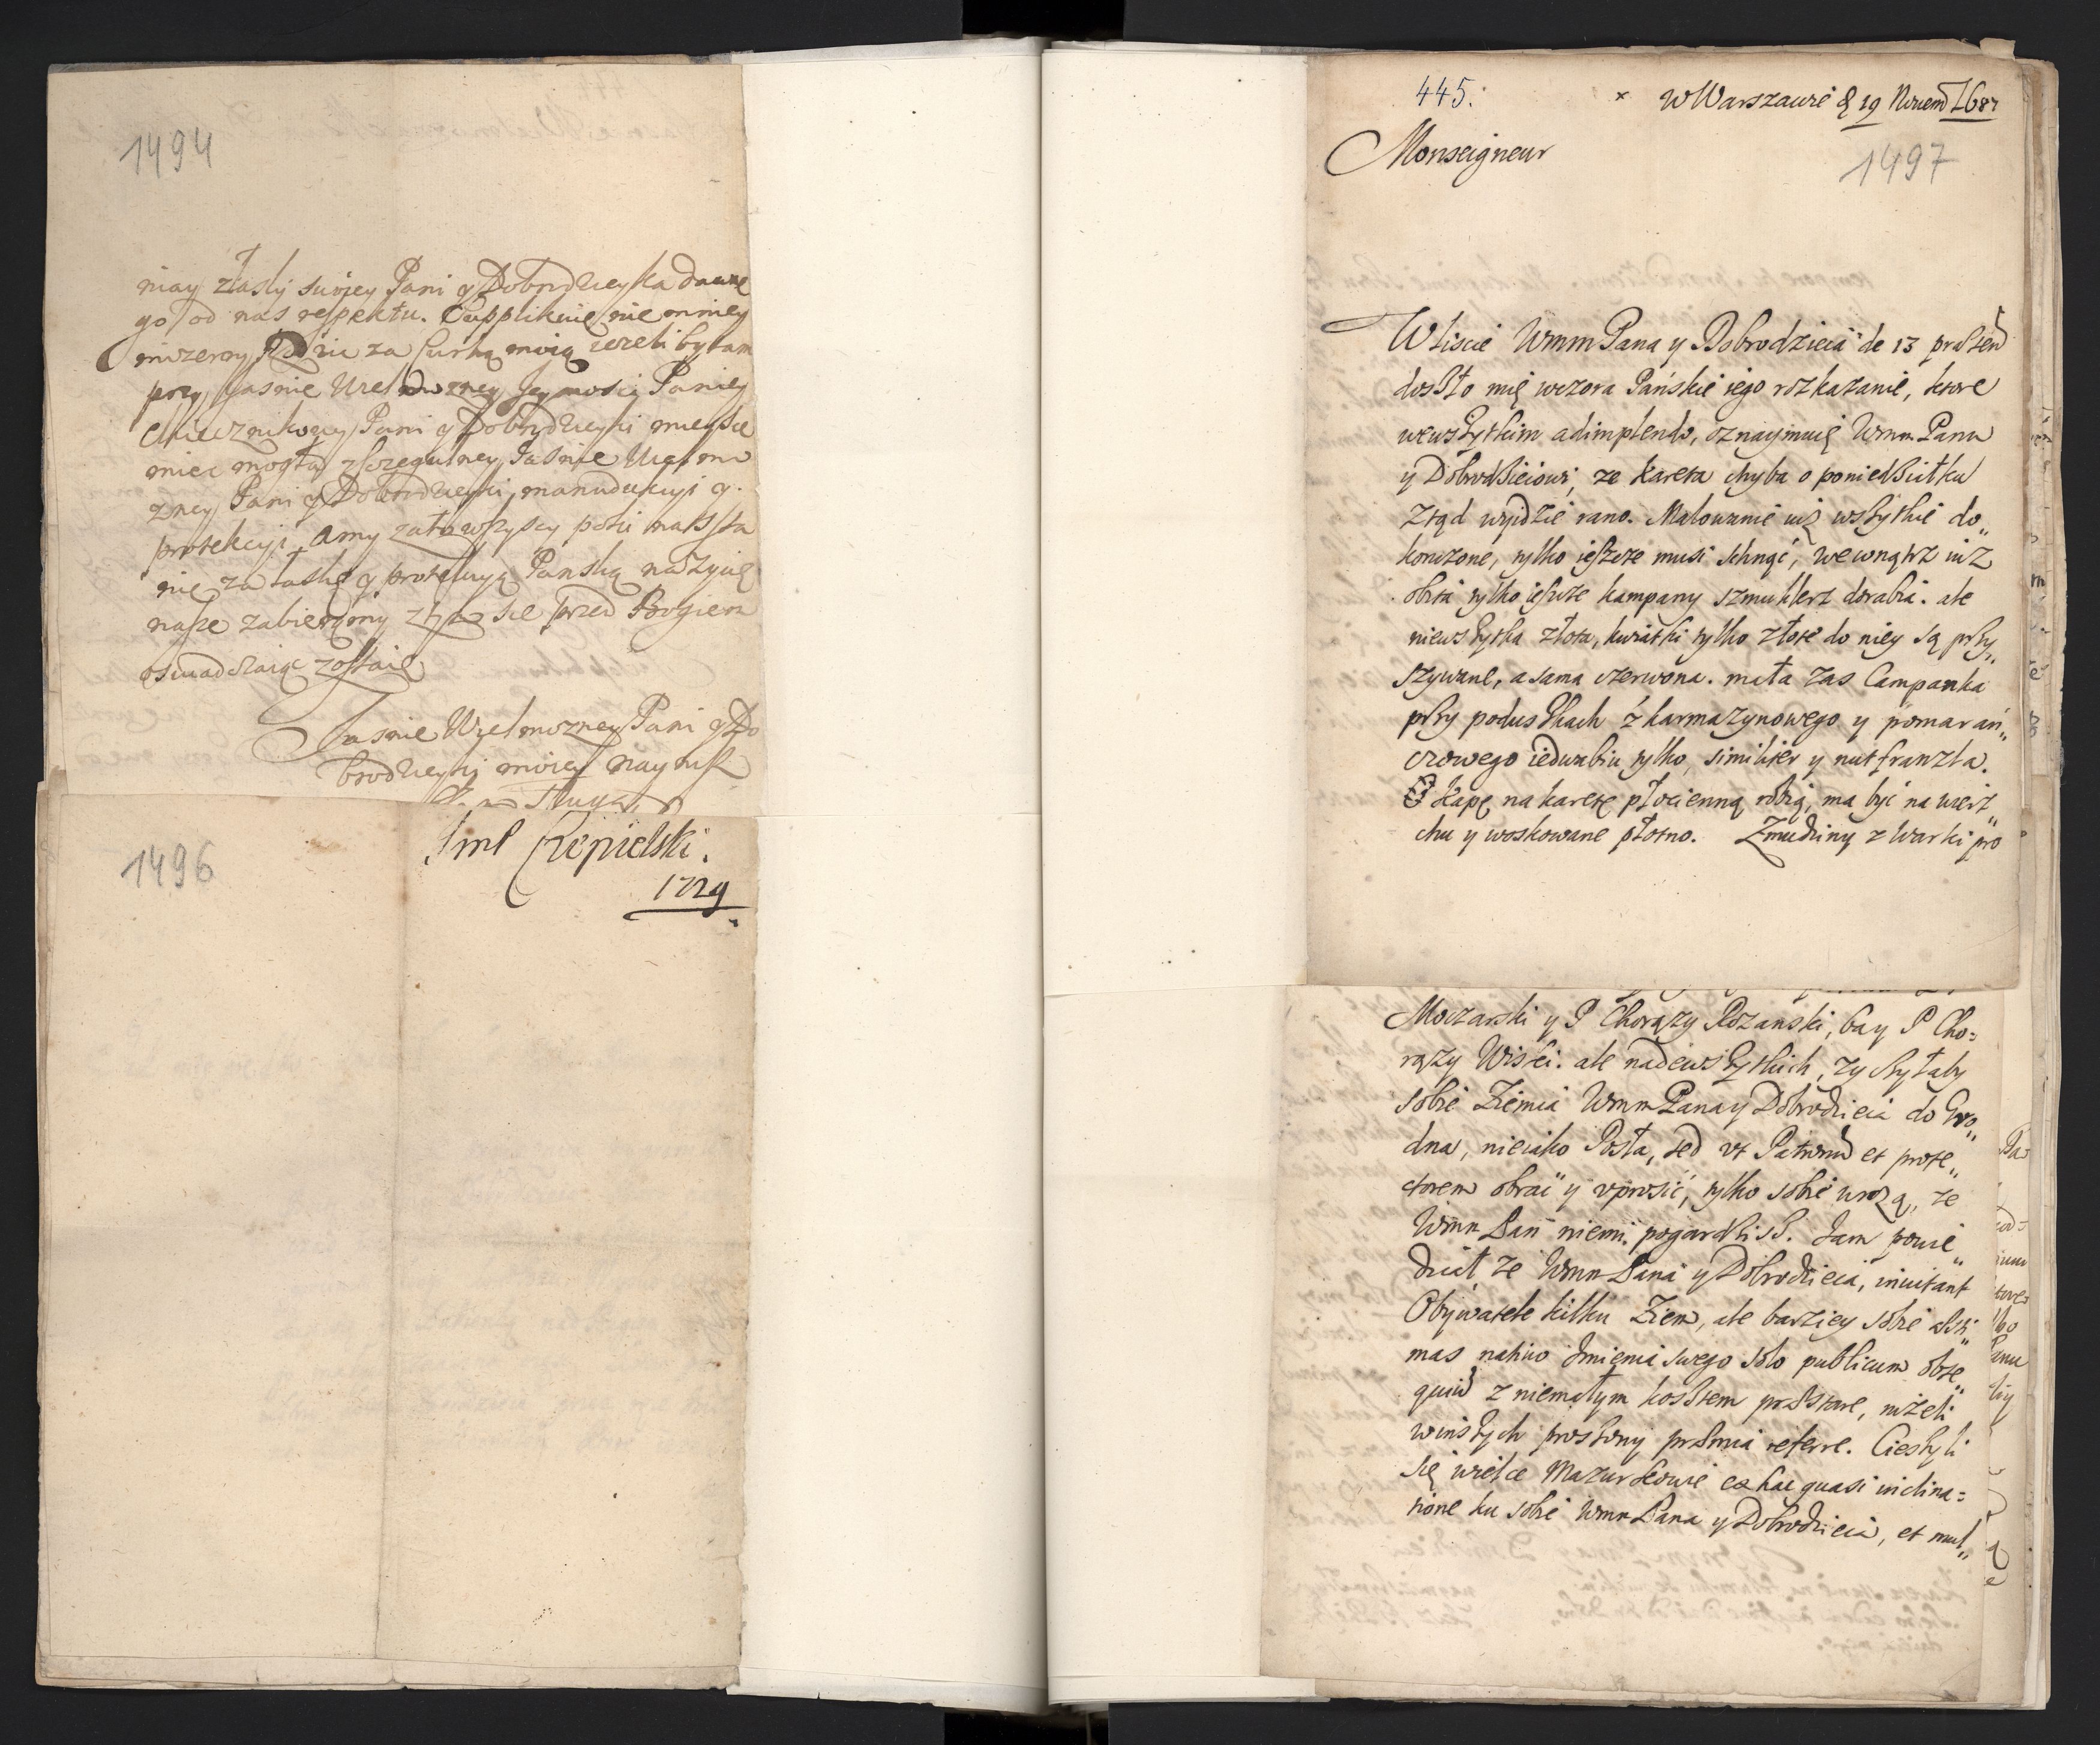 1494
niay złasły swoiey Pani y Dobrodzieyka dawne
go od nas respektu. Suppliknię nie mniey
mizerny Rodzic za Curką moią ieżeli by tam
przy Jasnie Wielmozney Jeymosci Paniey
Miecznikowey Pani y Dobrodzieyki mieysce
miec mogła z szczegulney Jasnie Wielmo
zney Pani y Dobrodzieyki manudukcyi y
protekcyi. Amy zato wszyscy poki nas sta
nie za łaskę y protekcyą Panską na zycię
nasze zabierzemy z tym sie przed Bogiem
oswiadczaiąc zostaię
Jasnie Wielmozney Pani y Do
brodzieyki moiey nayniz
Sługa
1496
Jmp Czepielski.
1729
445. × w Warszawie d 19 Nouem 1687
Monseigneur
1497
W liscie Wmm Pana y Dobrodzieia de 13 praesen
doszło mię wczora Pańskie iego rozkazanie, ktore
wewszytkim adimplendo, oznaymuię Wmm Panu
y Dobrodzieiowi, ze Kareta chyba o poniedziałku
ztąd wyidzie rano. Malowanie iuz wszytkie do„
konczone, tylko ieszcze musi schnąć, wewnątrz iuż
obita tylko iescze kampany szmuklerz dorabia. ale
niewszytka złota, kwiatki tylko złote do niey są przy„
szywane, a sama czerwona. mała zas Campanka
przy poduszkach z karmazynowego y pomarań„
czowego iedwabiu tylko, similiter y nut franzla.
Kapę na karetę płocienną robią, ma być na wierz„
chu y woskowane płotno. Zmudziny z Warki pro
Moczarski y P Chorązy Rozanski, bay P Cho=
rązy Wiski. ale nadewszytkich, zyczyłaby
sobie Ziemia Wmm Pana y Dobrodzieia do Gro„
dna, nieiako Posła, sed vt Patronum et prote„
ctorem obrać y vprosić, tylko sobie wrozą, ze
Wmm Pan niemi pogardzisz. Jam powie„
dział, ze Wmm Pana y Dobrodzieia, inuitant
Obywatele kilku Ziem, ale barziey sobie aesti„
mas natiuo Jmienia swego solo publicum obse„
quiu z niemałym kosztem praestare, niżeli
winszych prostony praemia referre. Cieszyli
się wielce Mazurkowie ex hac quasi inclina=
tione ku sobie Wmm Pana y Dobrodzieia, et mul„